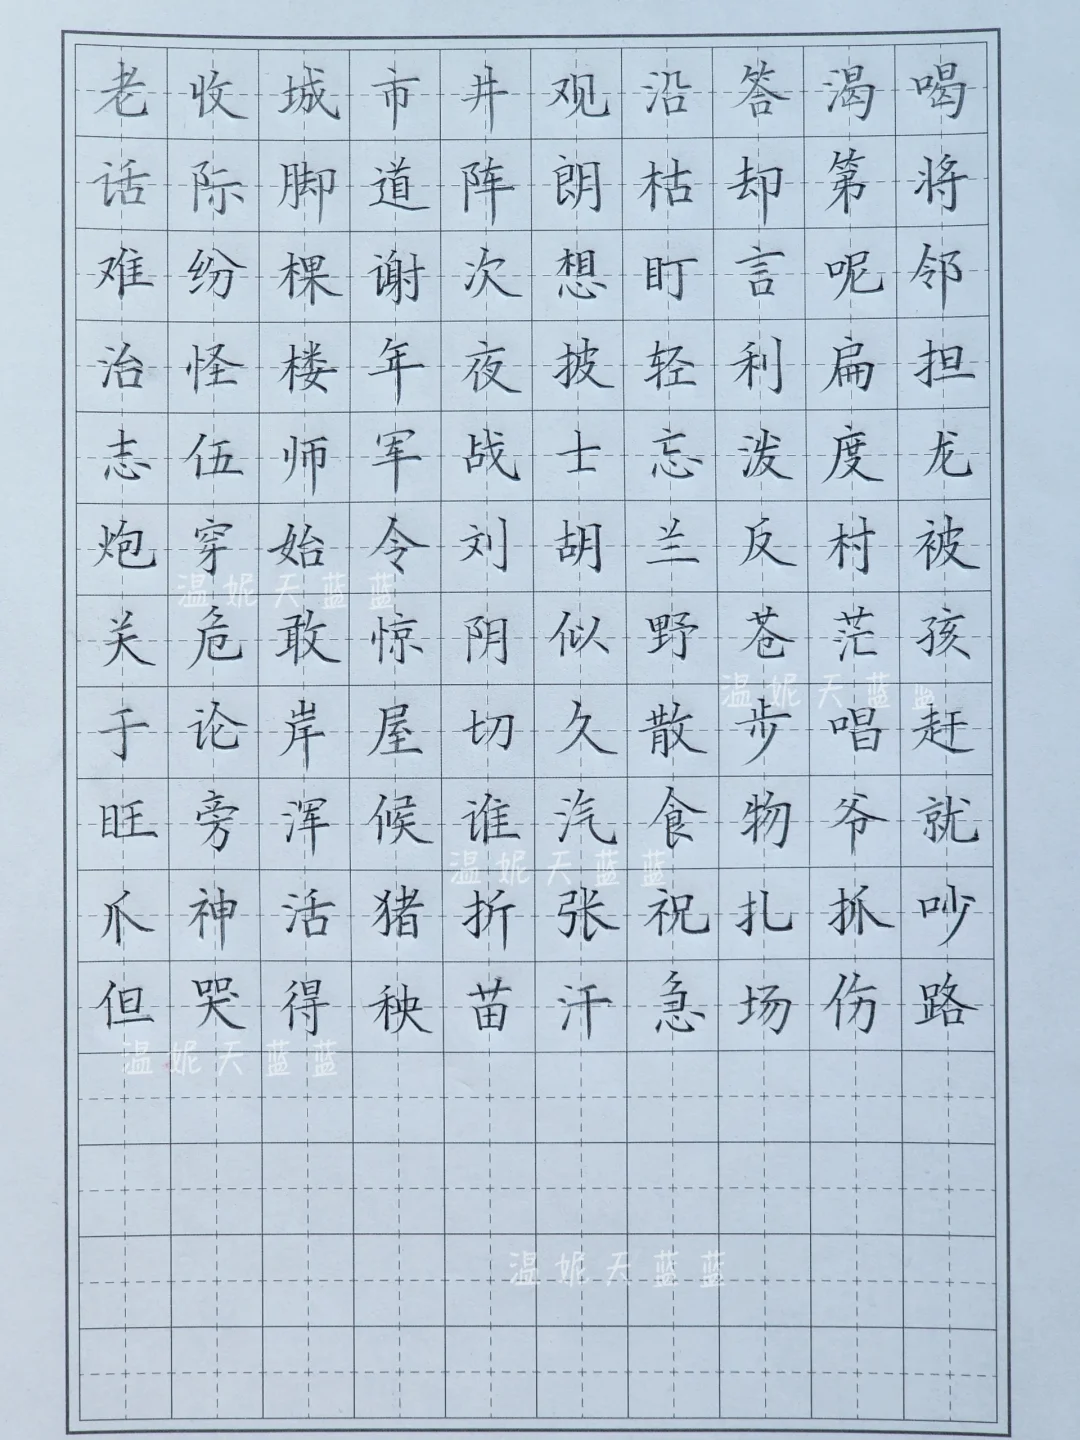 老收城市井观沿答渴喝
话际脚道阵朗枯却第将
难纷棵谢次想盯言呢邻
治怪楼年夜披轻利扁担
志伍师军战士忘泼度龙
炮穿始令刘胡兰反村被
温妮天蓝蓝
关危敢惊阴似野苍茫孩
温妮天蓝蓝
于论岸屋切久散步唱赶
旺旁浑候谁汽食物爷就
温妮天蓝蓝
爪神活猪折张祝扎抓吵
但哭得秧苗汗急场伤路
温妮天蓝蓝
温妮天蓝蓝